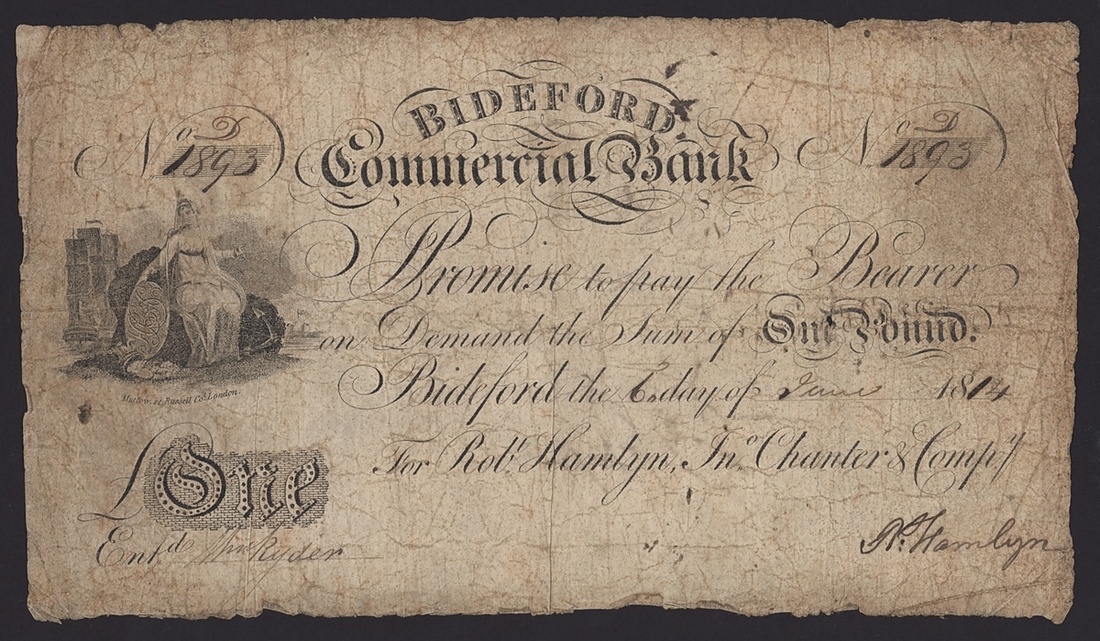 BIDEFORD
Commercial Bank
No D 1893
No D 1893
I Promise to pay the Bearer
on Demand the Sum of One Pound.
Bideford the 6 day of June 1814
For Robt. Hamlyn, Jno. Chanter & Compy
London.
£One
Entd Ryder
Rt. Hamlyn